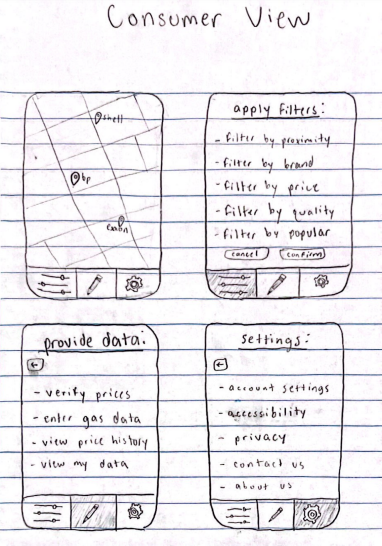 Consumer View
shell
bp
exxon
apply filters:
- filter by proximity
- filter by brand
- filter by price
- filter by quality
- filter by popular
cancel
confirm
provide data:
- verify prices
- enter gas data
- view price history
- view my data
settings:
- account settings
- accessibility
- privacy
- contact us
- about us